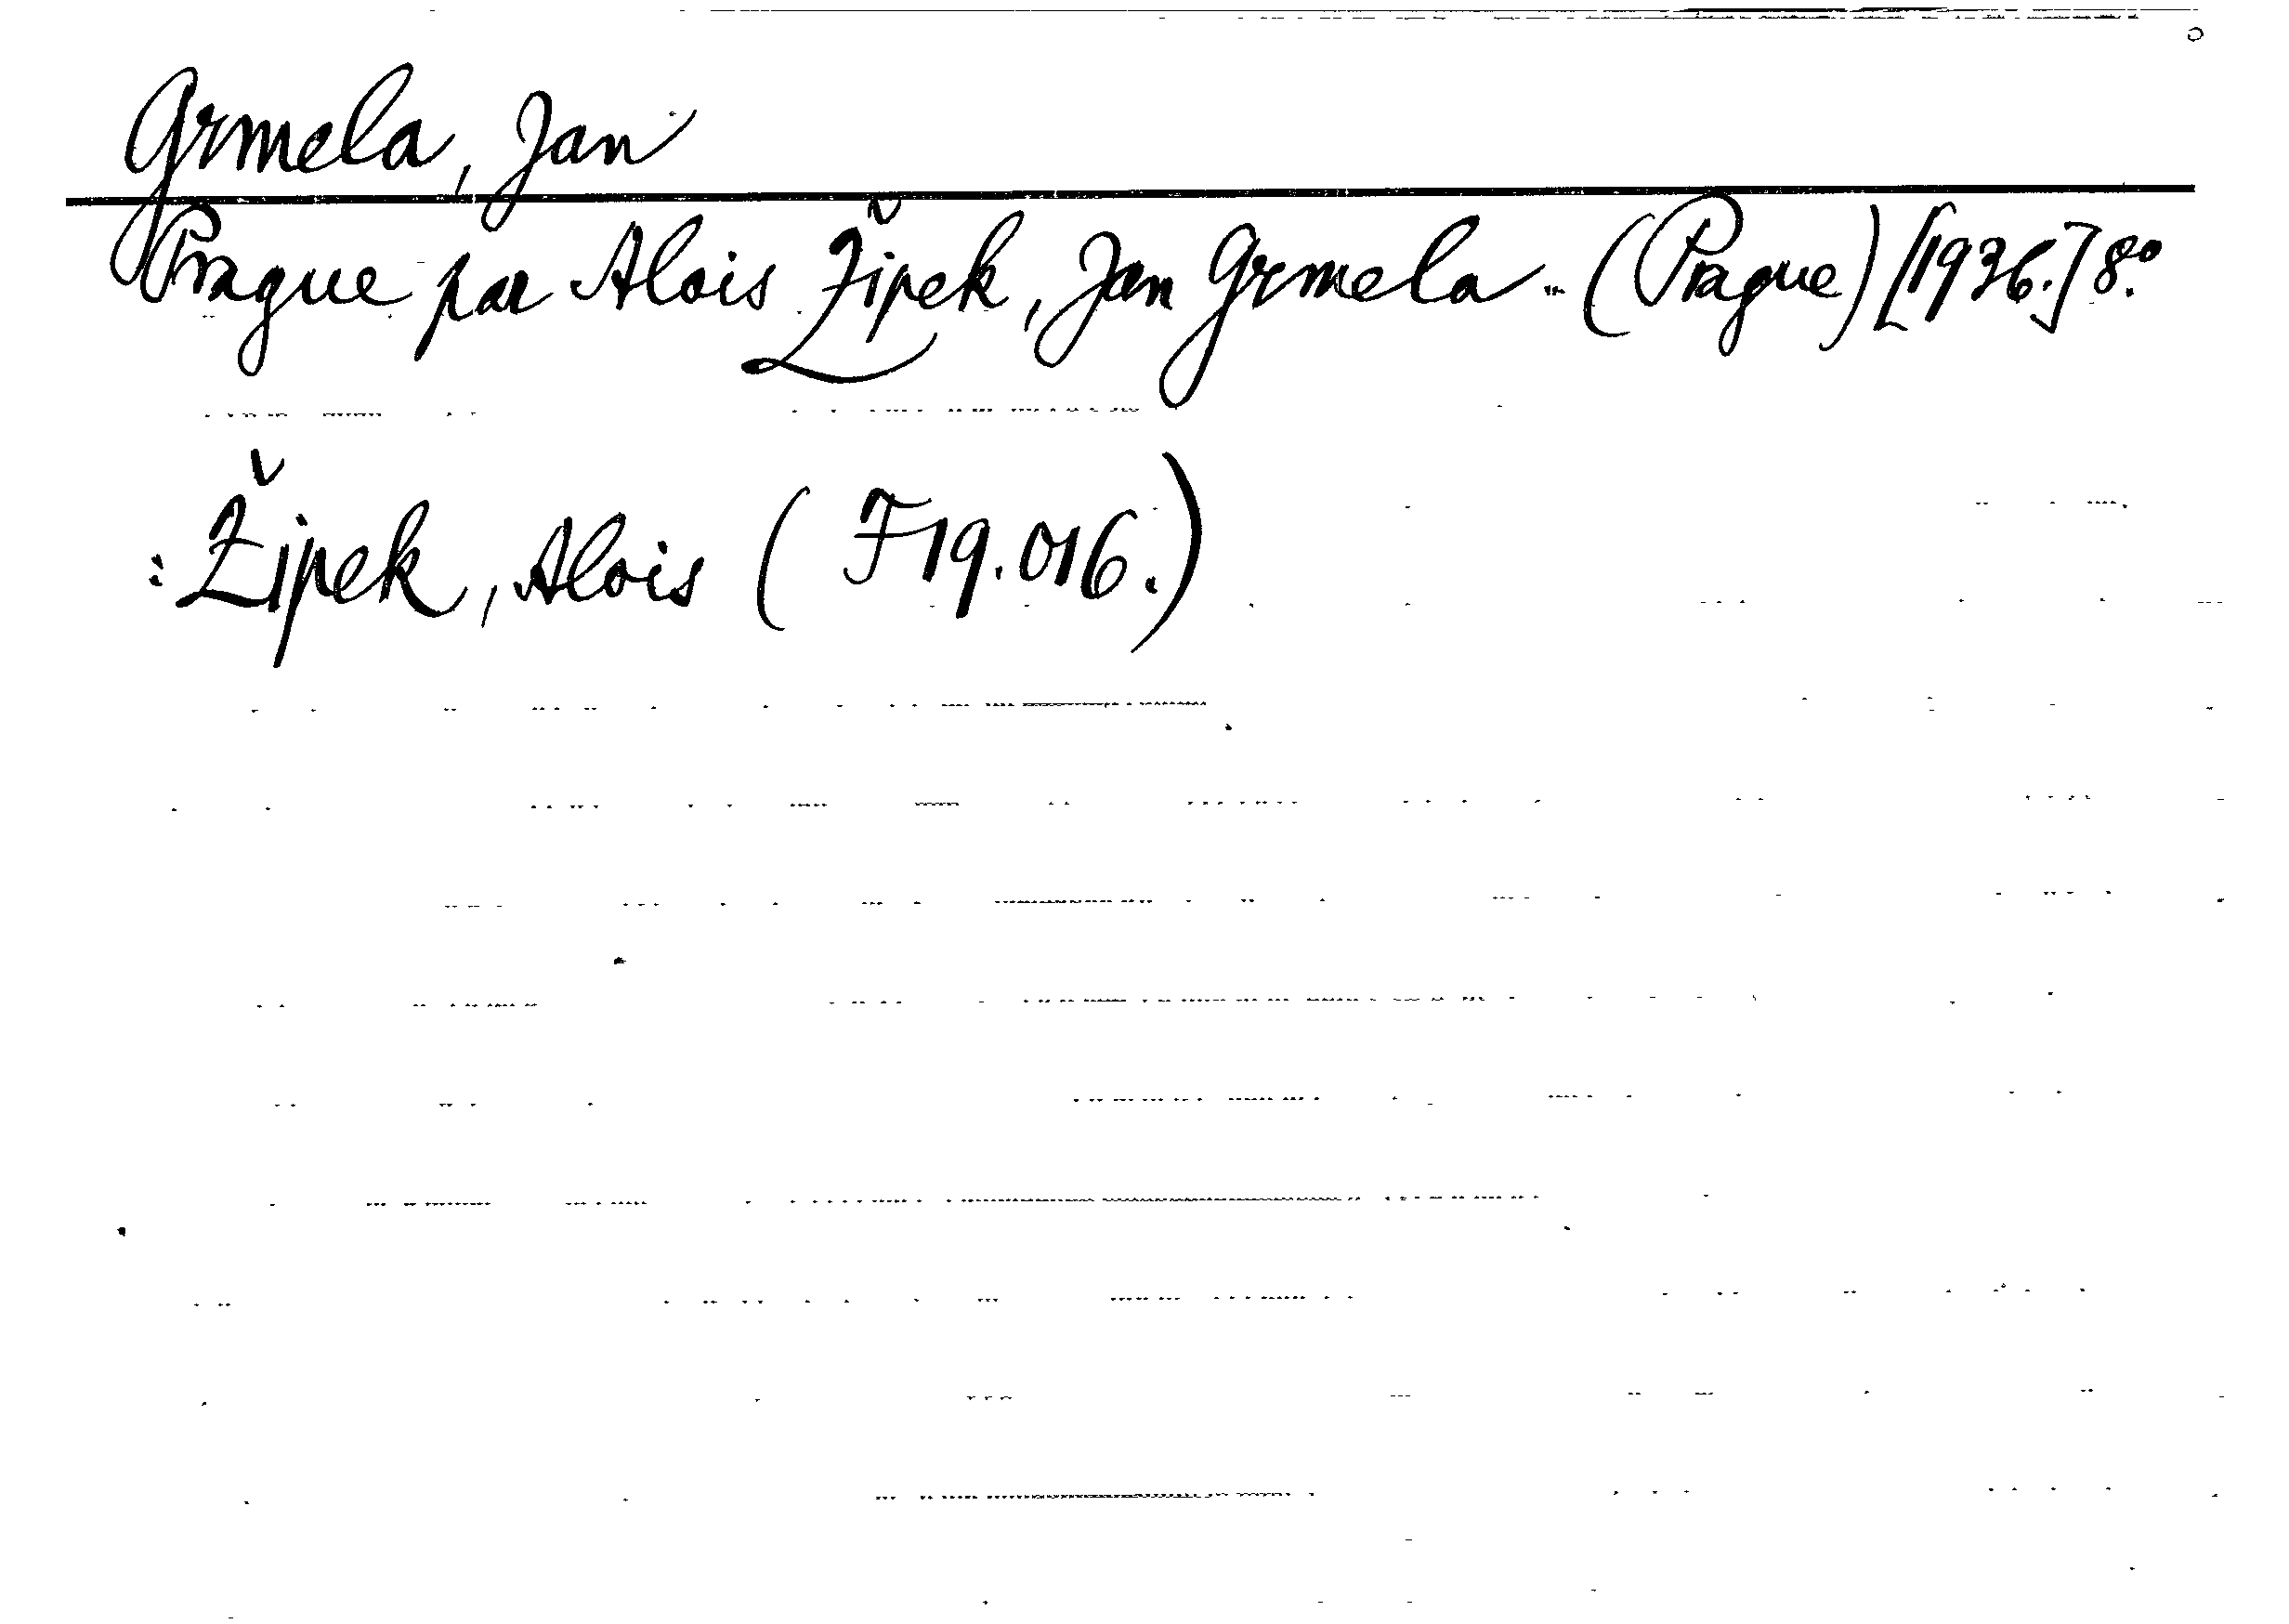 Grmela, Jan
Prague par Alois Žipek, Jan Grmela .. (Prague) [1936.] 8º.
: Žipek, Alois ( F 19.016.)